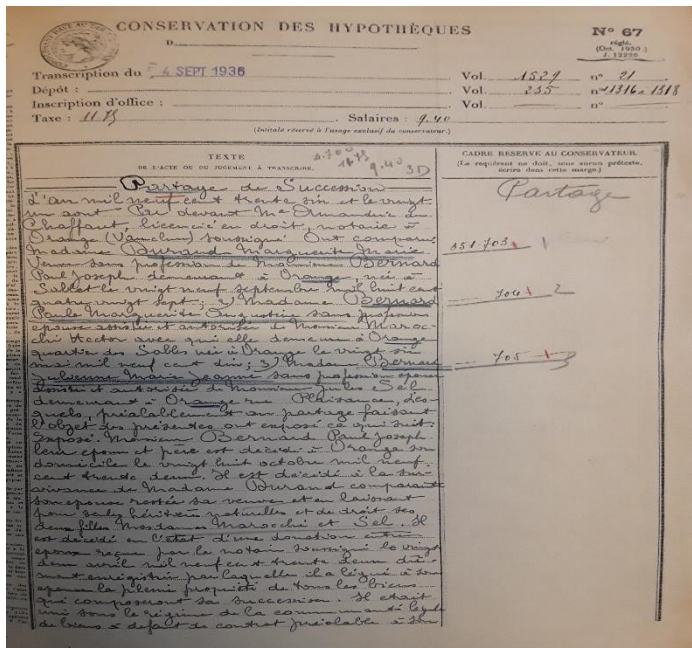 CONSERVATION DES HYPOTHÈQUES
D
N° 67
réglé.
(Oct. 1930.)
J. 12220
Transcription du 4 SEPT 1936
Vol. 1529 n° 21
Dépôt :
Vol. 235 nos 1316 a 1318
Inscription d'office :
Vol. n°
Taxe : 11.75
Salaires : 9.40
(Intitulé réservé à l'usage exclusif du conservateur.)
TEXTE
DE L'ACTE OU DU JUGEMENT A TRANSCRIRE.
9.40
3D
CADRE RÉSERVÉ AU CONSERVATEUR.
(Le requérant ne doit, sous aucun prétexte,
écrire dans cette marge.)
Partage
Partage de Succession
L'an mil neuf cent trente six et le vingt
un août. Par devant Me
Chaffaut, licencié en droit, notaire à
Orange (Vaucluse) soussigné. Ont comparu
Madame Durand Marguerite Marie
veuve sans profession de Monsieur Bernard
Paul Joseph demeurant à Orange née à
le vingt neuf septembre mil huit cent
quatre vingt sept ; 2) Madame Bernard
Paule Marguerite Augustine sans profession
épouse assistée et autorisée de Monsieur Maroc-
chi Hector avec qui elle demeure à Orange
quartier des Sables née à Orange le vingt six
mai mil neuf cent dix ; 3) Madame Bernard
Marie Jeanne sans profession épouse
assistée et autorisée de Monsieur Jules Sel
demeurant à Orange rue Plaisance, Les-
quels, préalablement au partage faisant
l'objet des présentes ont exposé ce qui suit.
Exposé. Monsieur Bernard Paul Joseph
leur époux et père est décédé à Orange son
domicile le vingt huit octobre mil neuf
cent trente deux. Il est décédé à la sur-
vivance de Madame Durand comparante
son épouse restée sa veuve et en laissant
pour seules héritières naturelles et de droit ses
deux filles Mesdames Marocchi et Sel. Il
est décédé en l'état d'une donation entre
époux reçue par le notaire soussigné le vingt
deux avril mil neuf cent trente deux dû-
ment enregistrée par laquelle il a légué à son
épouse la pleine propriété de tous les biens
qui composeront sa succession. Il était
uni sous le régime de la communauté légale
de biens à défaut de contrat préalable à son
351.703
704
705